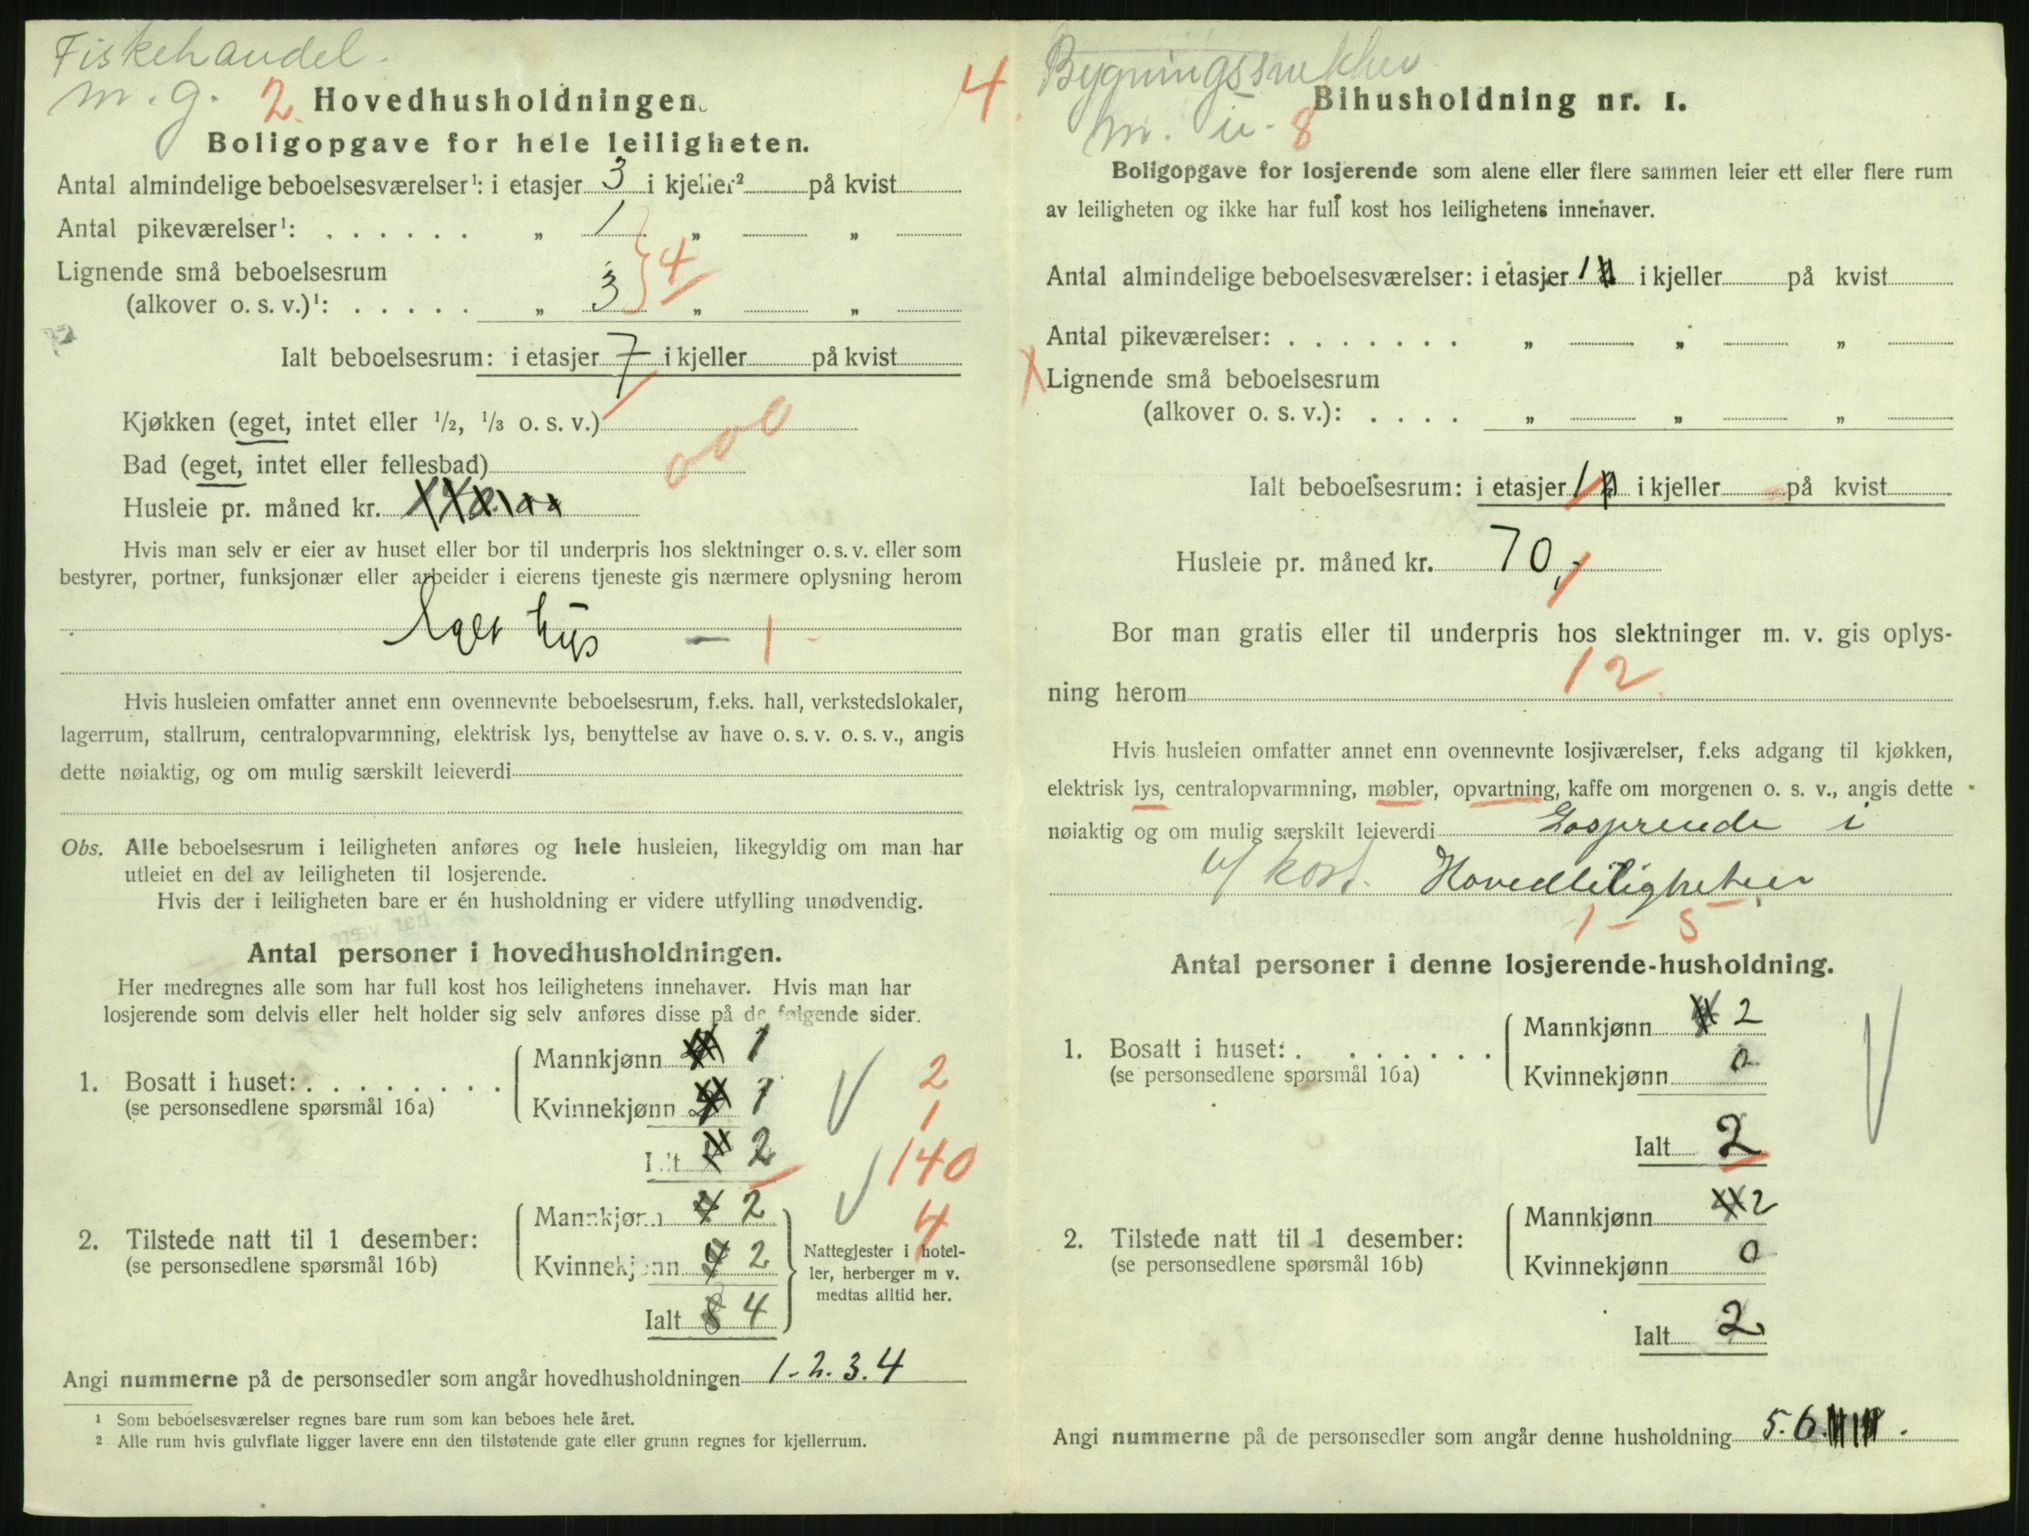 Fiskehandel.
m. g. 2. Hovedhusholdningen.
Boligopgave for hele leiligheten.
Antal almindelige beboelsesværelser¹: i etasjer 3 i kjeller² på kvist
Antal pikeværelser¹: . . . . . . „ 1 „ „
Lignende små beboelsesrum 4
(alkover o. s. v.)¹: . . . . . „ 3 „ „
Ialt beboelsesrum: i etasjer 7 i kjeller på kvist
Kjøkken (eget, intet eller 1/2, 1/3 o. s. v.)
Bad (eget, intet eller fellesbad) 000
Husleie pr. måned kr.
Hvis man selv er eier av huset eller bor til underpris hos slektninger o. s. v. eller som
bestyrer, portner, funksjonær eller arbeider i eierens tjeneste gis nærmere oplysning herom
Eget hus — 1 -
Hvis husleien omfatter annet enn ovennevnte beboelsesrum, f.eks. hall, verkstedslokaler,
lagerrum, stallrum, centralopvarmning, elektrisk lys, benyttelse av have o. s. v. o. s. v., angis
dette nøiaktig, og om mulig særskilt leieverdi
Obs. Alle beboelsesrum i leiligheten anføres og hele husleien, likegyldig om man har
utleiet en del av leiligheten til losjerende.
Hvis der i leiligheten bare er én husholdning er videre utfylling unødvendig.
Antal personer i hovedhusholdningen.
Her medregnes alle som har full kost hos leilighetens innehaver. Hvis man har
losjerende som delvis eller helt holder sig selv anføres disse på de følgende sider.
1. Bosatt i huset: . . . . . . . . Mannkjønn 1
(se personsedlene spørsmål 16a) Kvinnekjønn 1
Ialt 2
2
1
140
4
2. Tilstede natt til 1 desember: Mannkjønn 2
(se personsedlene spørsmål 16b) Kvinnekjønn 2
Ialt 4
Nattegjester i hotel-
ler, herberger m v.
medtas alltid her.
Angi nummerne på de personsedler som angår hovedhusholdningen 1-2.3.4
¹ Som beboelsesværelser regnes bare rum som kan beboes hele året.
² Alle rum hvis gulvflate ligger lavere enn den tilstøtende gate eller grunn regnes for kjellerrum.
4. Bygningssnekker
m. u. 8
Bihusholdning nr. 1.
Boligopgave for losjerende som alene eller flere sammen leier ett eller flere rum
av leiligheten og ikke har full kost hos leilighetens innehaver.
Antal almindelige beboelsesværelser: i etasjer 1 i kjeller på kvist
Antal pikeværelser: . . . . . . . „ „ „
X Lignende små beboelsesrum
(alkover o. s. v.): . . . . „ „ „
Ialt beboelsesrum: i etasjer 1 i kjeller på kvist
Husleie pr. måned kr. 70,-
Bor man gratis eller til underpris hos slektninger m. v. gis oplys-
12.
ning herom
Hvis husleien omfatter annet enn ovennevnte losjiværelser, f.eks adgang til kjøkken,
elektrisk lys, centralopvarmning, møbler, opvartning, kaffe om morgenen o. s. v., angis dette
nøiaktig og om mulig særskilt leieverdi Losjerende i
u/ kost. Hovedleiligheten
1 - 5
Antal personer i denne losjerende-husholdning.
1. Bosatt i huset: . . . . . . . . Mannkjønn 2
(se personsedlene spørsmål 16a) Kvinnekjønn 0
Ialt 2
2. Tilstede natt til 1 desember: Mannkjønn 2
(se personsedlene spørsmål 16b) Kvinnekjønn 0
Ialt 2
Angi nummerne på de personsedler som angår denne husholdning 5.6.